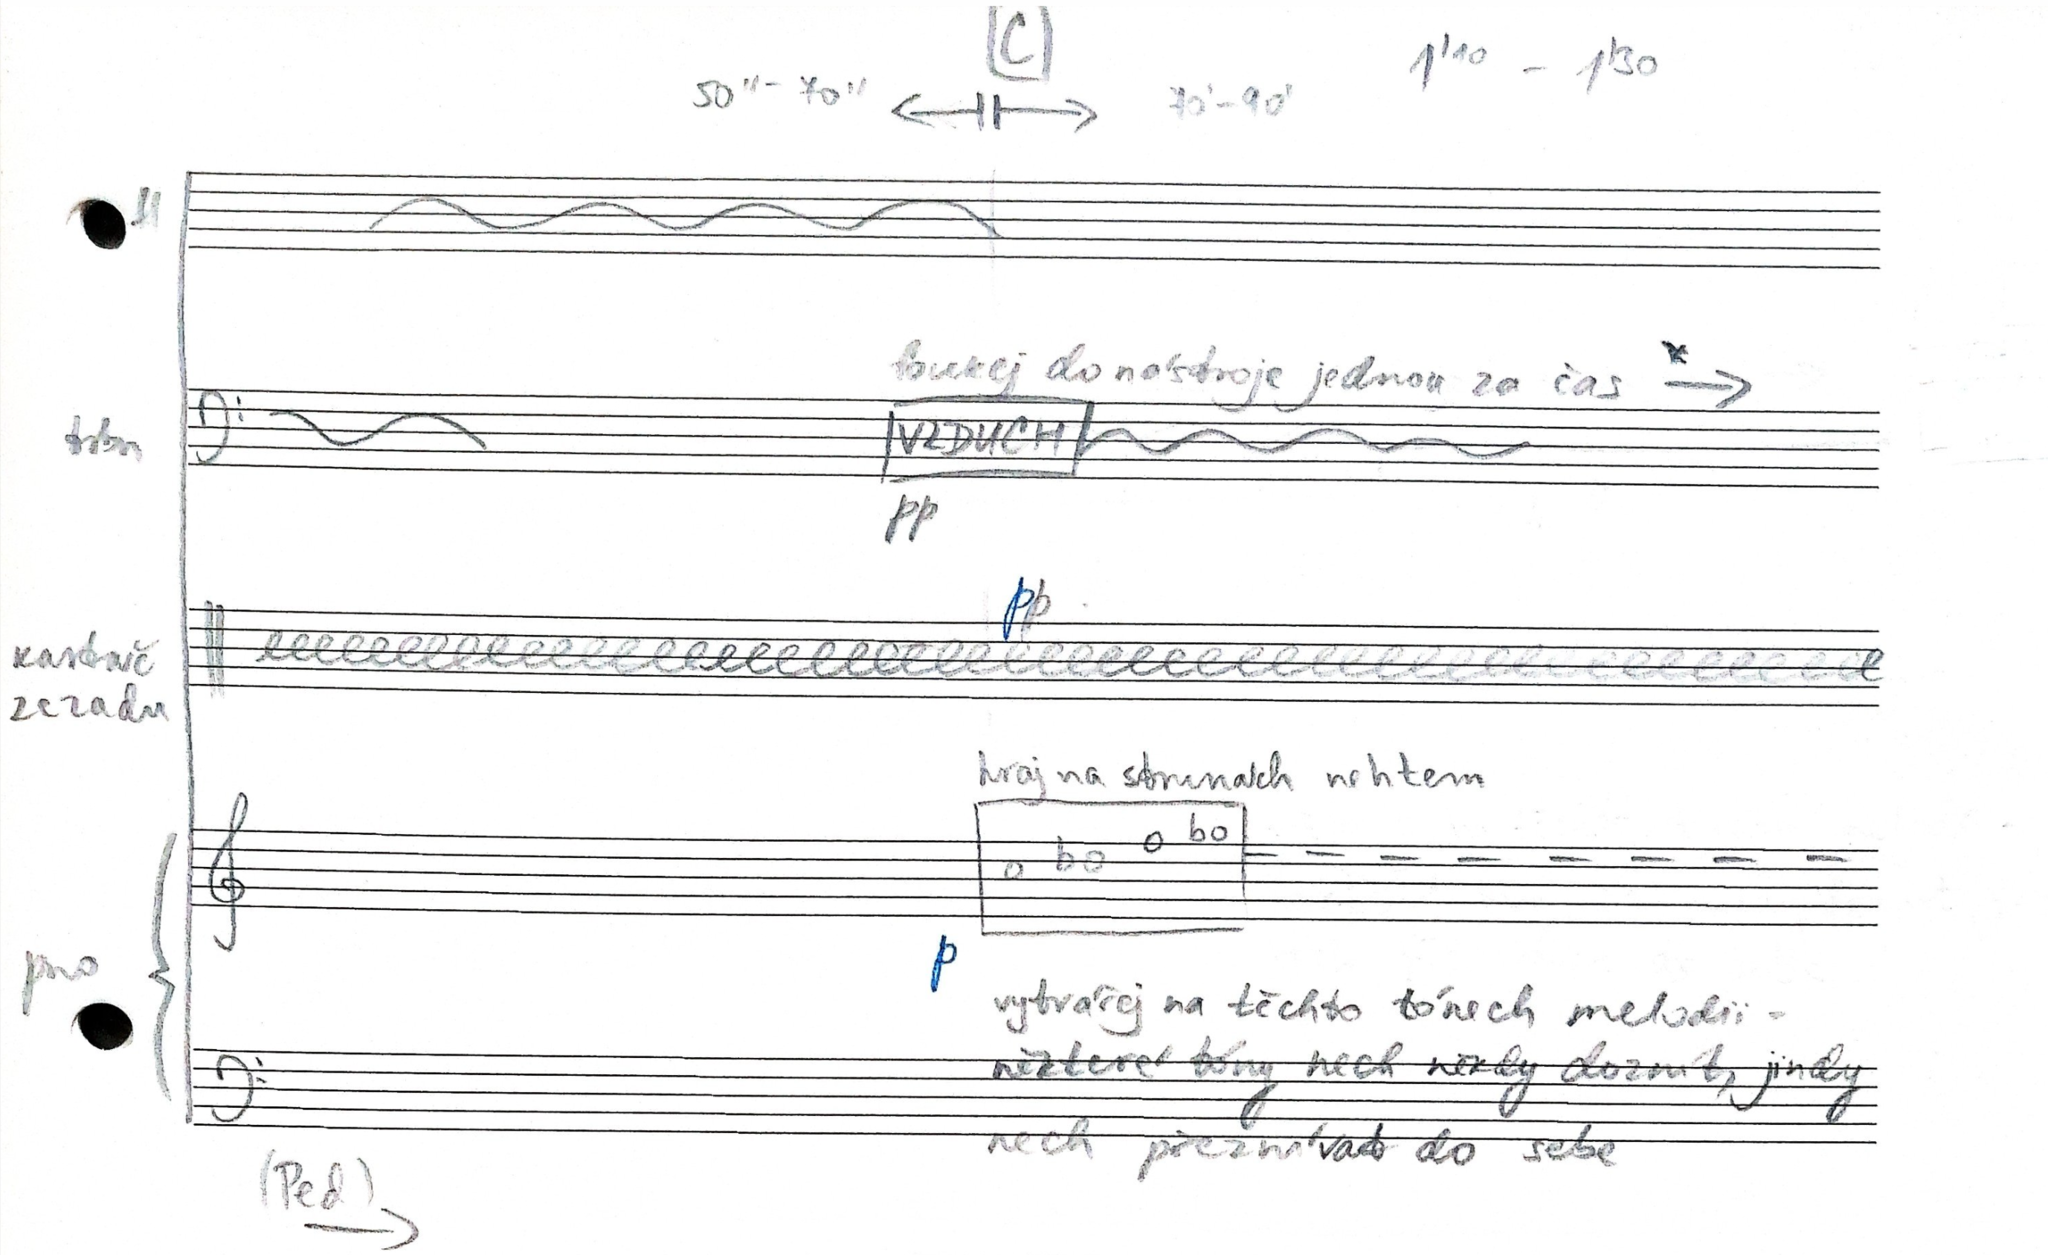 C
50"-70" 70'-90' 1'10 - 1'30
fl
foukej do nástroje jednou za čas
trbn
VZDUCH
pp
pp
kastrač
zezadu
hraj na strunách nehtem
bo
bo
p
pno
vytvářej na těchto tónech melodii -
některé tóny nech někdy doznít, jindy
nech přeznívat do sebe
(Ped)